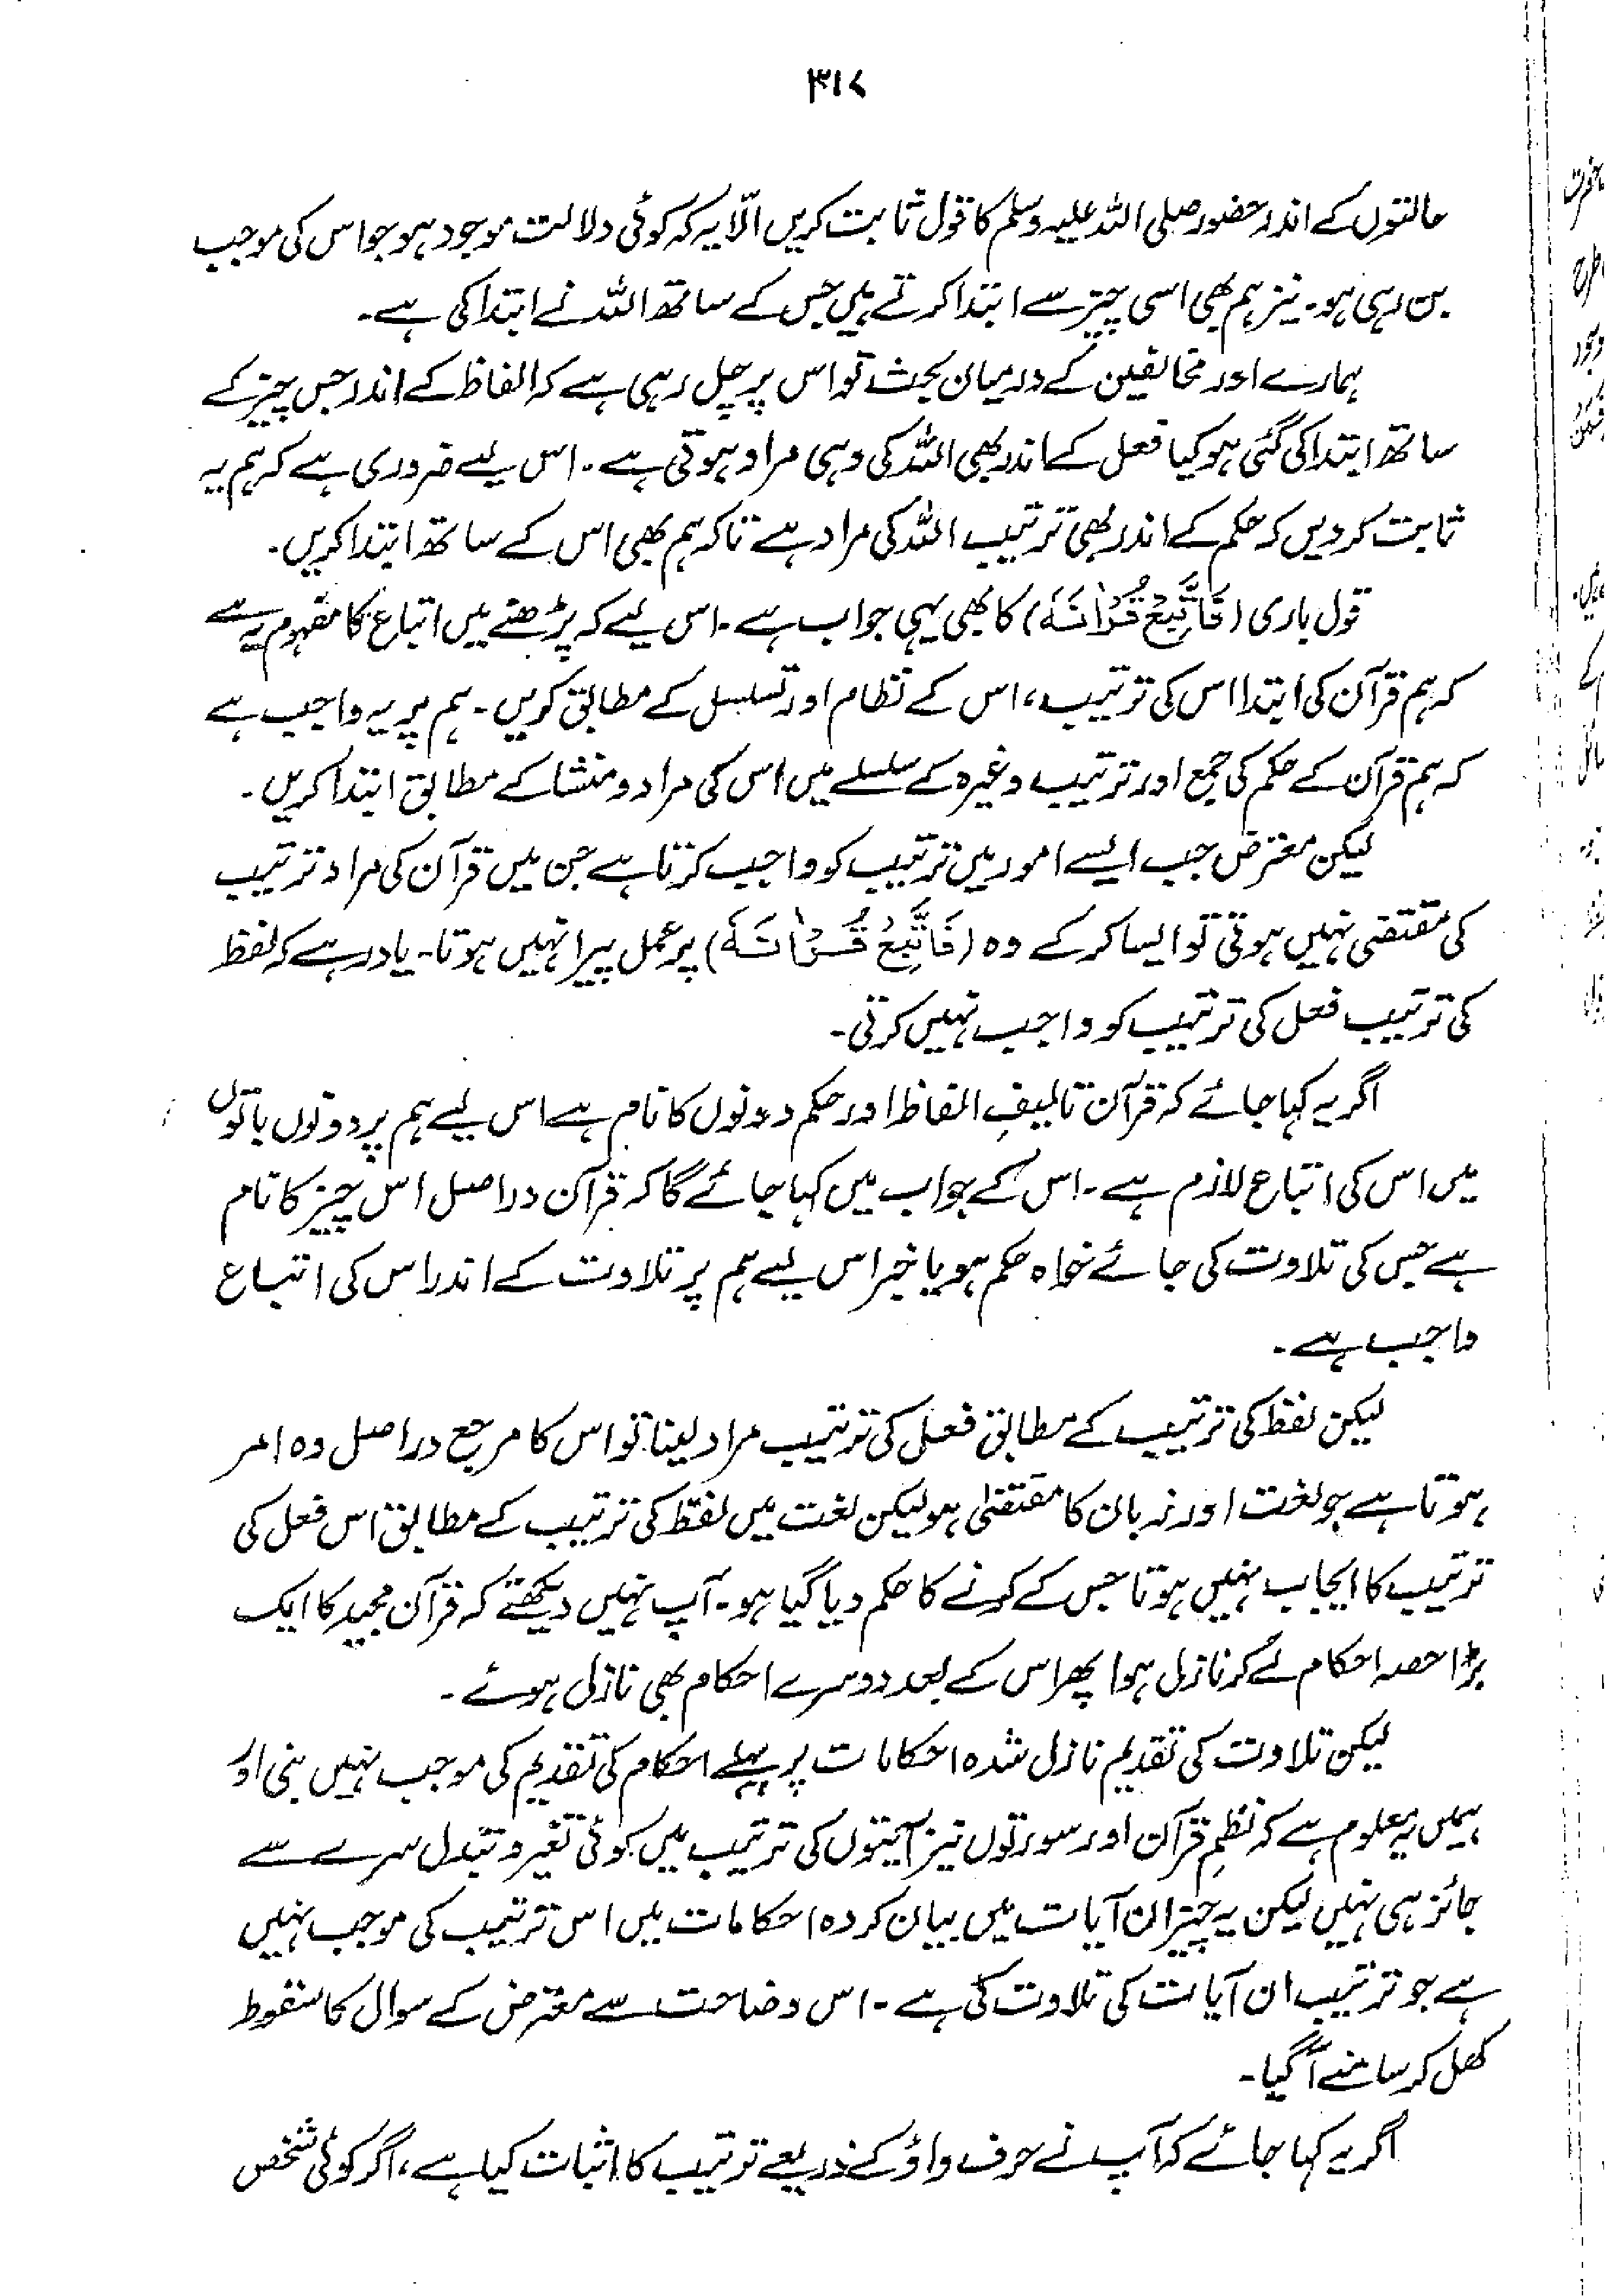 ۳۱۷
حالتوں کے اندر حضور صلی اللہ علیہ وسلم کا قول ثابت کریں الّا یہ کہ کوئی دلالت موجود ہو جو اس کی موجب
بن رہی ہو۔ نیز ہم بھی اسی چیز سے ابتدا کرتے ہیں جس کے ساتھ اللہ نے ابتدا کی ہے۔
ہمارے اور مخالفین کے درمیان بحث تو اس پر چل رہی ہے کہ الفاظ کے اندر جس چیز کے
ساتھ ابتدا کی گئی ہو کیا فعل کے اندر بھی اللہ کی وہی مراد ہوتی ہے۔ اس لیے ضروری ہے کہ ہم یہ
ثابت کر دیں کہ حکم کے اندر بھی ترتیب اللہ کی مراد ہے تاکہ ہم بھی اس کے ساتھ ابتدا کریں۔
قول باری (فَاتَّبِعْ قُرْاٰنَہٗ) کا بھی یہی جواب ہے۔ اس لیے کہ پڑھنے میں اتباع کا مفہوم یہ ہے
کہ ہم قرآن کی ابتدا اس کی ترتیب، اس کے نظام اور تسلسل کے مطابق کریں۔ ہم پر یہ واجب ہے
کہ ہم قرآن کے حکم کی جمع اور ترتیب وغیرہ کے سلسلے میں اس کی مراد و منشا کے مطابق ابتدا کریں۔
لیکن معترض جب ایسے امور میں ترتیب کو واجب کرتا ہے جن میں قرآن کی مراد ترتیب
کی مقتضی نہیں ہوتی تو ایسا کر کے وہ (فَاتَّبِعْ قُرْاٰنَہٗ) پر عمل پیرا نہیں ہوتا۔ یاد رہے کہ لفظ
کی ترتیب فعل کی ترتیب کو واجب نہیں کرتی۔
اگر یہ کہا جائے کہ قرآن تالیفِ الفاظ اور حکم دونوں کا نام ہے اس لیے ہم پر دونوں باتوں
میں اس کی اتباع لازم ہے۔ اس کے جواب میں کہا جائے گا کہ قرآن دراصل اس چیز کا نام
ہے جس کی تلاوت کی جائے خواہ حکم ہو یا خبر اس لیے ہم پر تلاوت کے اندر اس کی اتباع
واجب ہے۔
لیکن لفظ کی ترتیب کے مطابق فعل کی ترتیب مراد لینا تو اس کا مرجع دراصل وہ امر
ہوتا ہے جو لغت اور زبان کا مقتضیٰ ہو لیکن لغت میں لفظ کی ترتیب کے مطابق اس فعل کی
ترتیب کا ایجاب نہیں ہوتا جس کے کرنے کا حکم دیا گیا ہو۔ آپ نہیں دیکھتے کہ قرآن مجید کا ایک
بڑا حصہ احکام لے کر نازل ہوا پھر اس کے بعد دوسرے احکام بھی نازل ہوئے۔
لیکن تلاوت کی تقدیم نازل شدہ احکامات پر پہلے احکام کی تقدیم کی موجب نہیں بنی اور
ہمیں یہ معلوم ہے کہ نظمِ قرآن اور سورتوں نیز آیتوں کی ترتیب میں کوئی تغیر و تبدل سرے سے
جائز ہی نہیں لیکن یہ چیز ان آیات میں بیان کردہ احکامات میں اس ترتیب کی موجب نہیں
ہے جو ترتیب ان آیات کی تلاوت کی ہے۔ اس وضاحت سے معترض کے سوال کا سقوط
کھل کر سامنے آگیا۔
اگر یہ کہا جائے کہ آپ نے حرف واؤ کے ذریعے ترتیب کا اثبات کیا ہے، اگر کوئی شخص